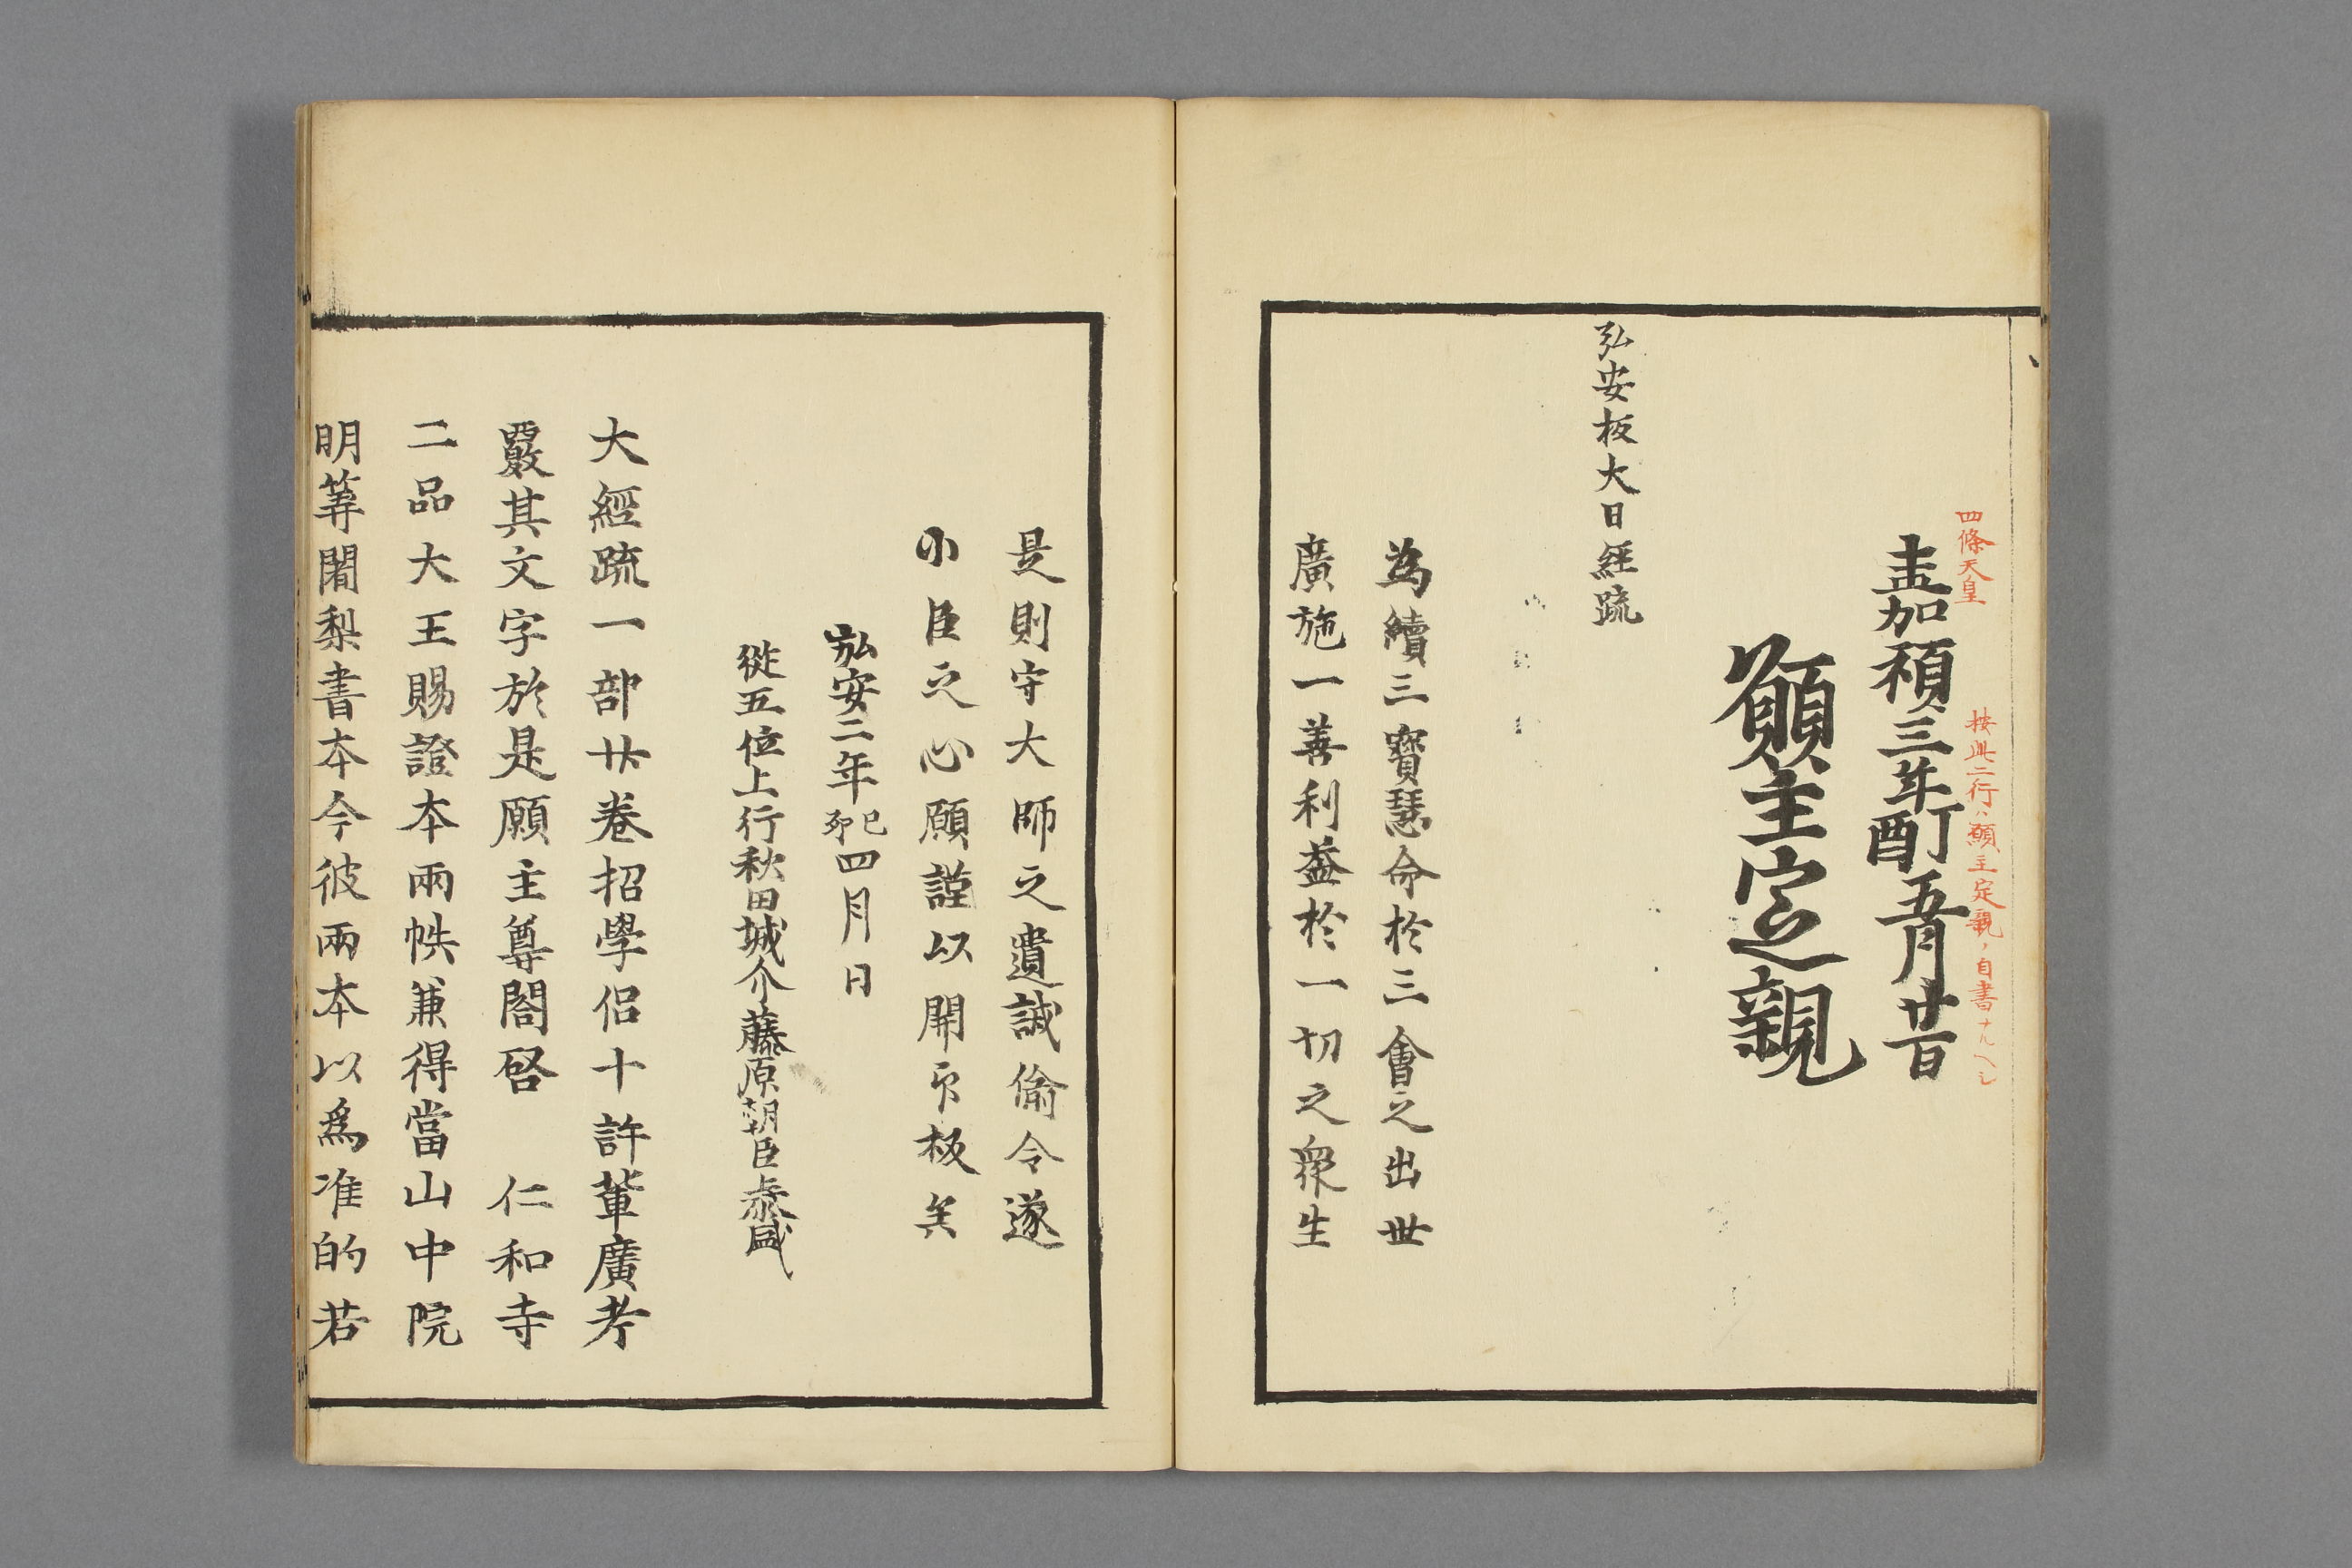 四條天皇
嘉禎三年丁酉五月廿一日
按此二行ハ願主定親ノ自書ナルヘシ
願主定親
弘安板大日經疏
為續三寳慧命於三會之出世
廣施一善利益於一切之衆生
是則守大師之遺誡偷令遂
小臣之心願謹以開印板矣
弘安二年己卯四月日
從五位上行秋田城介藤原朝臣泰盛
大經疏一部廿卷招學侶十許輩廣考
覈其文字於是願主尊閤啓　仁和寺
二品大王賜證本兩帙兼得當山中院
明筭闍梨書本今彼兩本以爲准的若